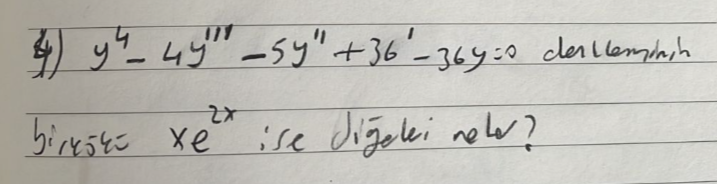 4) y⁴ - 4y''' - 5y'' + 36' - 36y = 0 denkleminin
bir kökü xe^2x ise diğerleri neler?